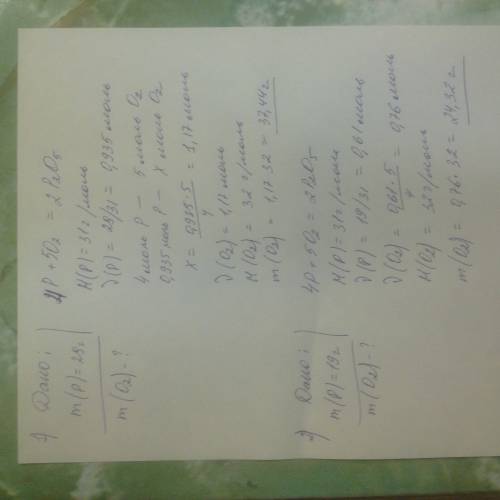 1) Дано:
m(P)=29г
m(O2)-?
4P + 5O2 = 2P2O5
M(P) = 31г/моль
ν(P) = 29/31 = 0,935 моль
4 моль P — 5 моль O2
0,935 моль P — x моль O2
x = 0,935·5/4 = 1,17 моль
ν(O2) = 1,17 моль
M(O2) = 32 г/моль
m(O2) = 1,17·32 = 37,44г
2) Дано:
m(P)=19г
m(O2)-?
4P + 5O2 = 2P2O5
M(P) = 31г/моль
ν(P) = 19/31 = 0,61 моль
ν(O2) = 0,61·5/4 = 0,76 моль
M(O2) = 32г/моль
m(O2) = 0,76·32 = 24,32 г